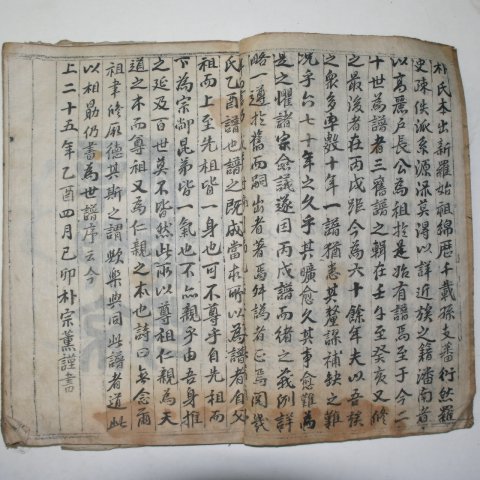 朴氏本出新羅始祖綿歷千載孫支蕃衍然羅
史疎佚派系源深莫得以詳近族之籍潘南者
以高麗戶長公爲祖於是始有譜焉至于今二
十世爲譜者三舊譜之輯在壬午至癸亥又修
之最後者在丙戌距今爲六十餘年夫以吾族
之衆多率數十年一譜猶患其釐謬補缺之難
況乎六七十年之久乎其曠愈久其事愈難爲
是之懼諸宗僉議遂因丙戌譜而緖之義例詳
略一遵於舊而嗣出者著焉舛譌者正焉閱幾
氏乙酉譜也譜之旣成當本所以爲譜者自父
祖而上至先祖皆一身也可不尊乎自先祖而
下爲宗鄒昆弟皆一氣也不亦親乎由吾身推
之延及百世莫不皆然此所以尊祖仁親爲天
道之本而尊祖又爲仁親之本也詩曰無念爾
祖聿修厥德其斯之謂歟樂與同此譜者道此
以相勗仍書爲世譜序云今
上二十五年乙酉四月己卯朴宗薰謹書